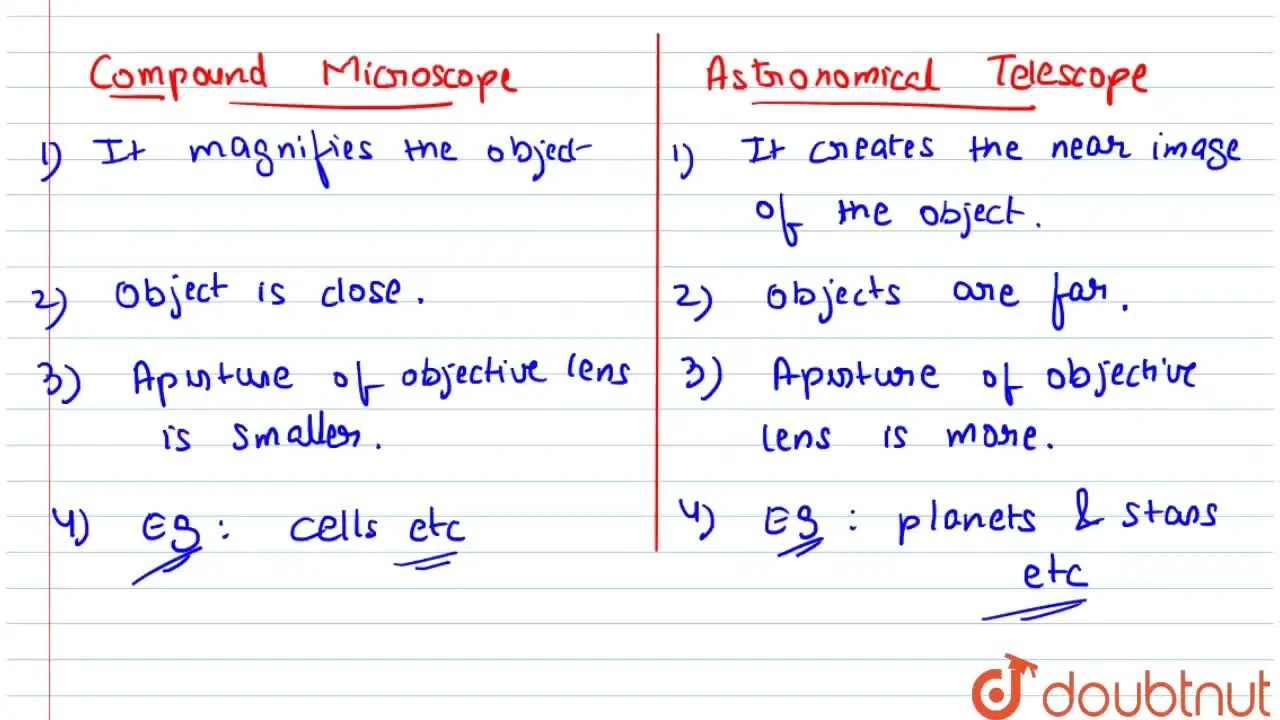 Compound Microscope
1) It magnifies the object
2) Object is close.
3) Aperture of objective lens
is smaller.
4) Eg: cells etc
Astronomical Telescope
1) It creates the near image
of the object.
2) Objects are far.
3) Aperture of objective
lens is more.
4) Eg: planets & stars
etc
doubtnut